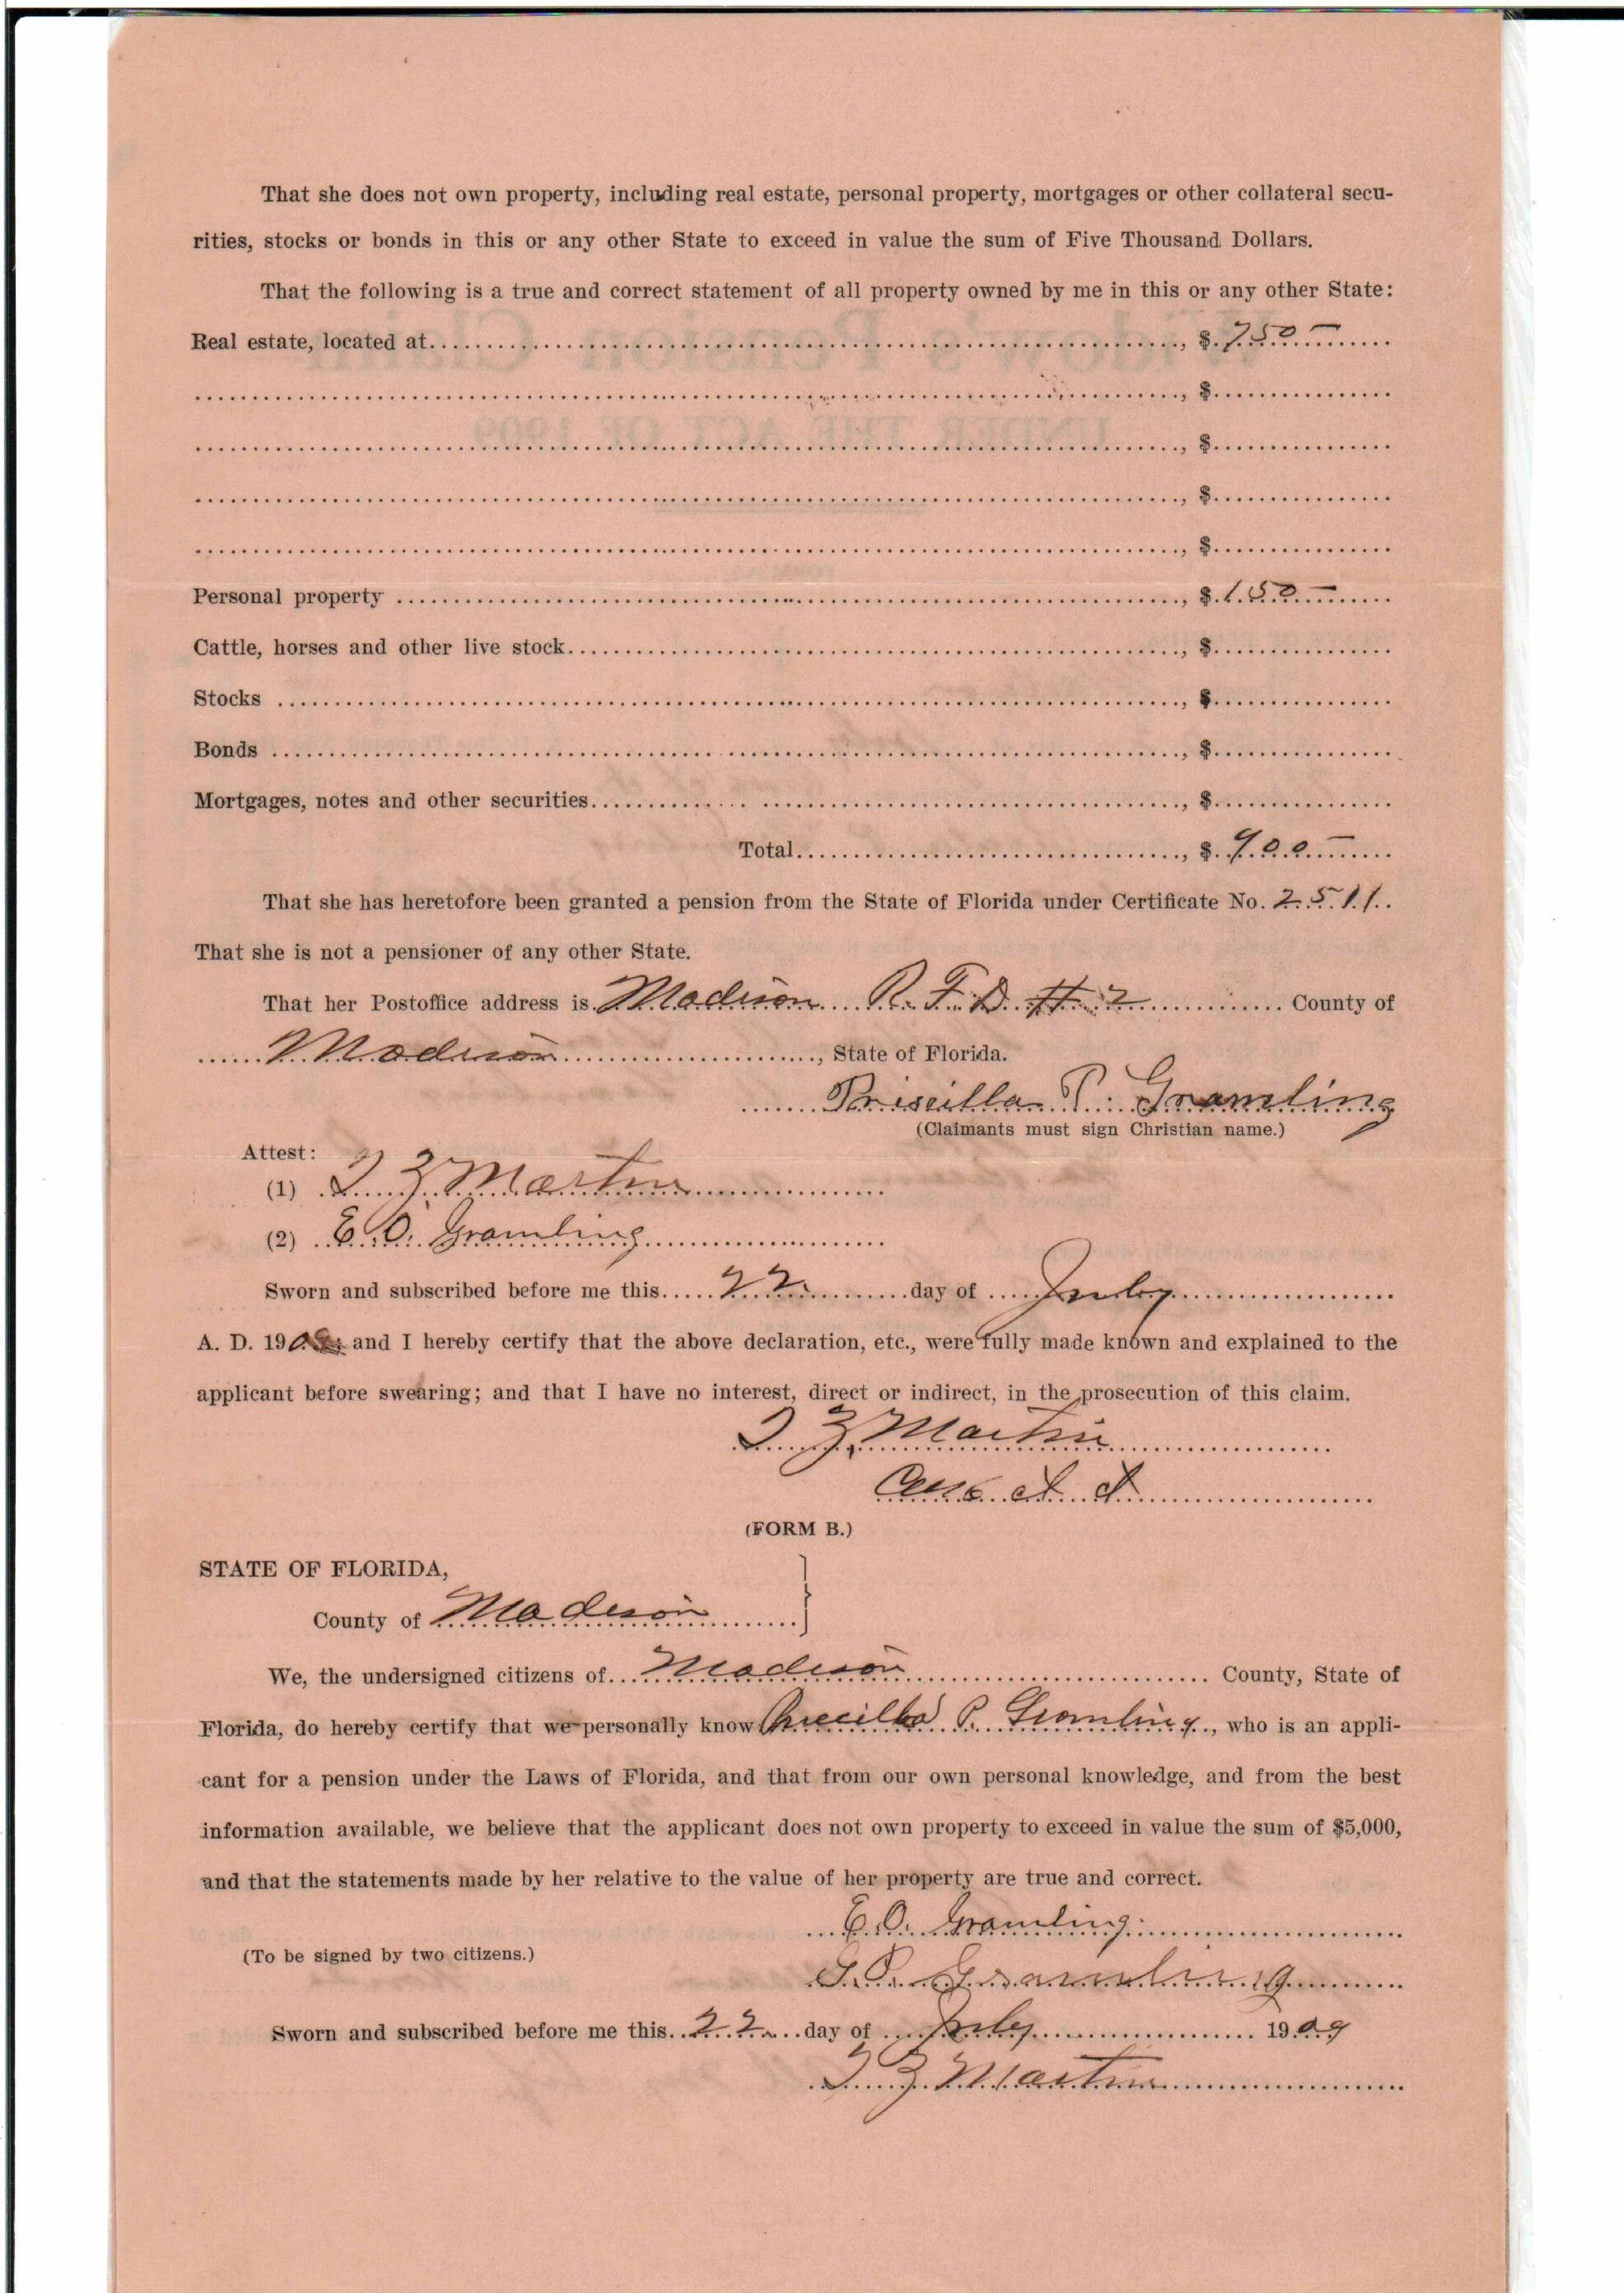 That she does not own property, including real estate, personal property, mortgages or other collateral secu-
rities, stocks or bonds in this or any other State to exceed in value the sum of Five Thousand Dollars.
That the following is a true and correct statement of all property owned by me in this or any other State:
Real estate, located at , $ 750 –
, $
, $
, $
, $
Personal property , $ 150 –
Cattle, horses and other live stock , $
Stocks , $
Bonds , $
Mortgages, notes and other securities , $
Total , $ 900 –
That she has heretofore been granted a pension from the State of Florida under Certificate No. 2511
That she is not a pensioner of any other State.
That her Postoffice address is Madison R. F. D. # 2 County of
Madison , State of Florida.
Priscilla P. Gramling
(Claimants must sign Christian name.)
Attest:
(1) Martin
(2) E. O. Gramling
Sworn and subscribed before me this 22 day of July
A. D. 190 and I hereby certify that the above declaration, etc., were fully made known and explained to the
applicant before swearing; and that I have no interest, direct or indirect, in the prosecution of this claim.
Martin
(FORM B.)
STATE OF FLORIDA,
County of Madison
We, the undersigned citizens of Madison County, State of
Florida, do hereby certify that we personally know Precilla P. Gramling , who is an appli-
cant for a pension under the Laws of Florida, and that from our own personal knowledge, and from the best
information available, we believe that the applicant does not own property to exceed in value the sum of $5,000,
and that the statements made by her relative to the value of her property are true and correct.
E. O. Gramling
(To be signed by two citizens.)
Gramling
Sworn and subscribed before me this 22 day of July 1909
Martin